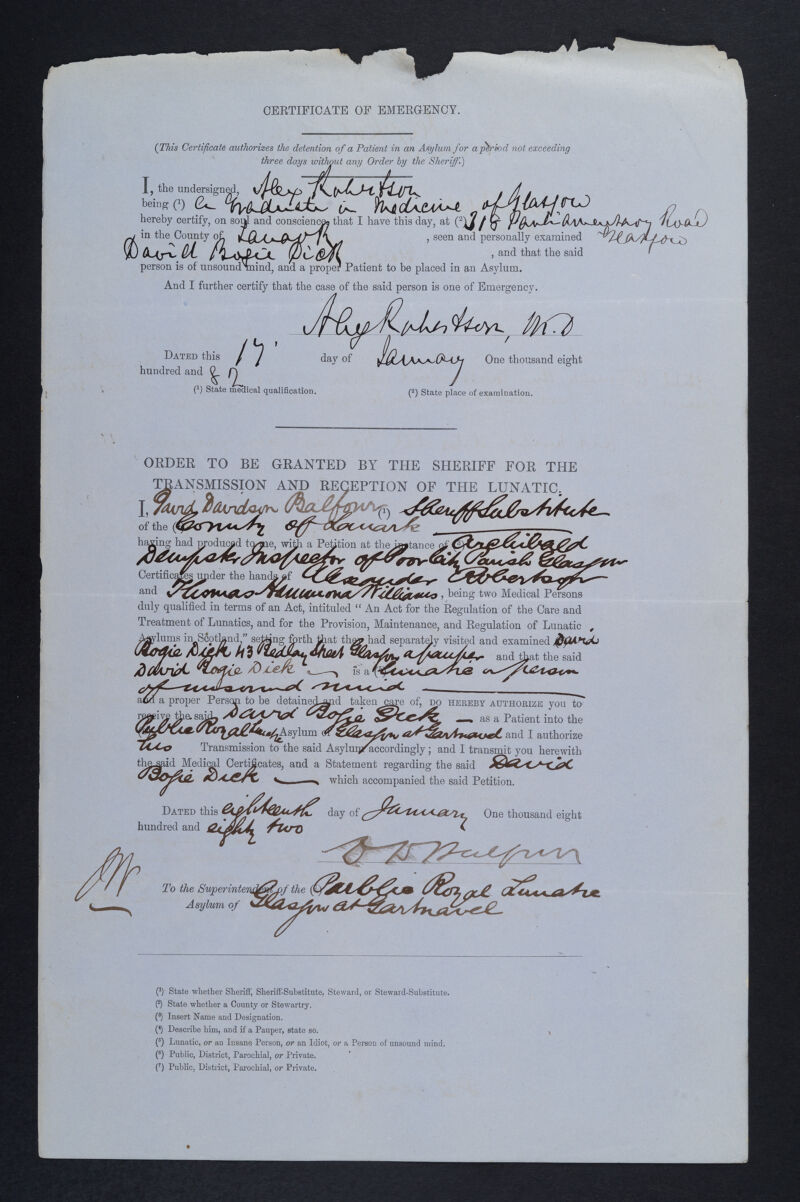 CERTIFICATE OF EMERGENCY.
(This Certificate authorizes the detention of a Patient in an Asylum for a period not exceeding
three days without any Order by the Sheriff.)
I, the undersigned, Alex Robertson
being (¹) a Graduate in Medicine of Glasgow
hereby certify, on soul and conscience, that I have this day, at (²) 318 Parliamentary Road
in the County of Lanark , seen and personally examined Glasgow
David Bogie Dick , and that the said
person is of unsound mind, and a proper Patient to be placed in an Asylum.
And I further certify that the case of the said person is one of Emergency.
Alex Robertson, M.D
DATED this 17 day of January One thousand eight
hundred and 82
(¹) State medical qualification. (²) State place of examination.
ORDER TO BE GRANTED BY THE SHERIFF FOR THE
TRANSMISSION AND RECEPTION OF THE LUNATIC.
I, David Davidson Balfour (¹) Sheriff Substitute
of the County of Lanark
having had produced to me, with a Petition at the instance of Archibald
Dempster Inspector of Poor City Parish Glasgow
Certificates under the hands of Alexander Robertson
and Thomas Hammond Williams, being two Medical Persons
duly qualified in terms of an Act, intituled "An Act for the Regulation of the Care and
Treatment of Lunatics, and for the Provision, Maintenance, and Regulation of Lunatic
Asylums in Scotland," setting forth that they had separately visited and examined David
Bogie Dick 43 Bedlay Street Glasgow a pauper and that the said
David Bogie Dick — is a Lunatic or person
of unsound mind —
and a proper Person to be detained and taken care of, DO HEREBY AUTHORIZE you to
receive the said David Bogie Dick — as a Patient into the
Public Royal Lunatic Asylum of Glasgow at Gartnavel and I authorize
his Transmission to the said Asylum accordingly; and I transmit you herewith
the said Medical Certificates, and a Statement regarding the said David
Bogie Dick — which accompanied the said Petition.
DATED this eighteenth day of January One thousand eight
hundred and eighty two
D D Balfour
To the Superintendent of the Public Royal Lunatic
Asylum of Glasgow at Gartnavel
(¹) State whether Sheriff, Sheriff-Substitute, Steward, or Steward-Substitute.
(²) State whether a County or Stewartry.
(³) Insert Name and Designation.
(⁴) Describe him, and if a Pauper, state so.
(⁵) Lunatic, or an Insane Person, or an Idiot, or a Person of unsound mind.
(⁶) Public, District, Parochial, or Private.
(⁷) Public, District, Parochial, or Private.